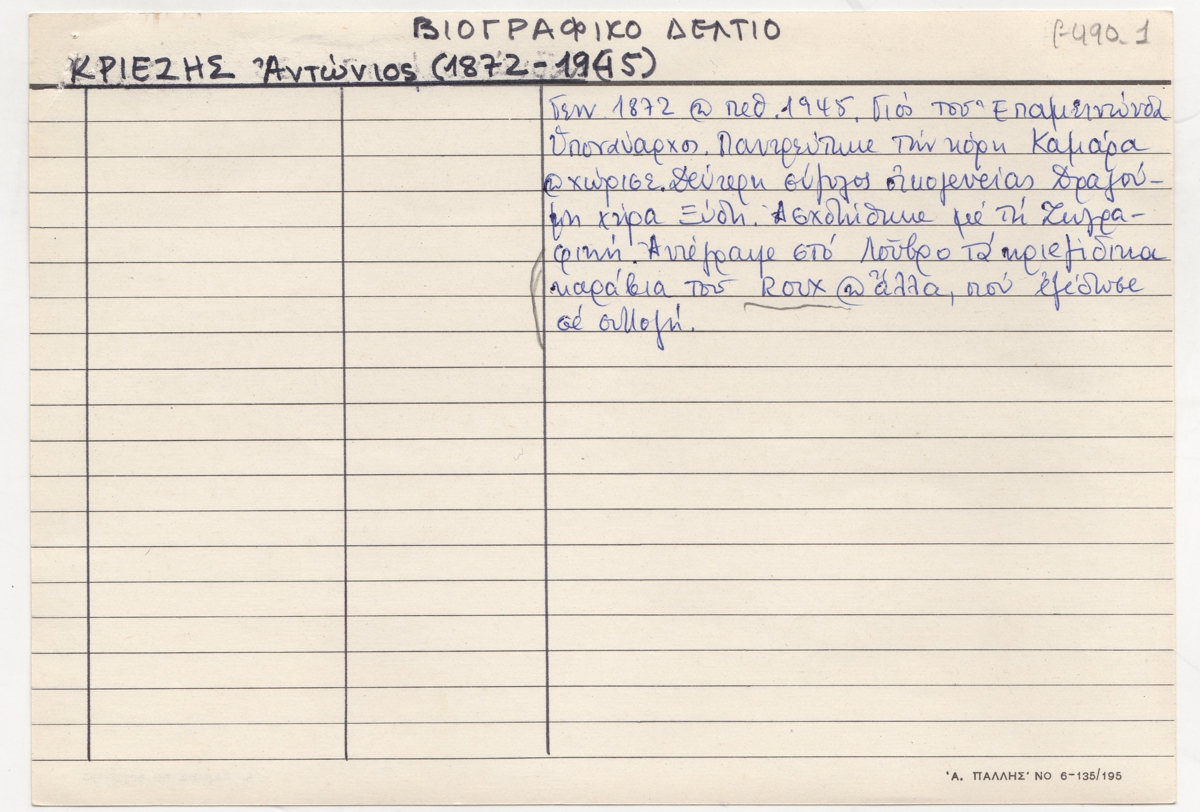 ΒΙΟΓΡΑΦΙΚΟ ΔΕΛΤΙΟ
β-490.1
ΚΡΙΕΖΗΣ Ἀντώνιος (1872-1945)
Γεν 1872 @ πεθ. 1945. Γιός του Ἐπαμεινώνδα
Ὑποναύαρχος. Παντρεύτηκε τήν κόρη Καμάρα
@ χώρισε. Δεύτερη σύζυγος οἰκογενείας Δραγού-
μη χήρα Ξύδη. Ἀσχολήθηκε μέ τή Ζωγρα-
φική. Ἀντέγραψε στό Λοῦβρο τά κριεζίδικα
καράβια τοῦ Roux @ ἄλλα, πού ἐξέδωσε
σέ συλλογή.
'Α. ΠΑΛΛΗΣ' ΝΟ 6-135/195